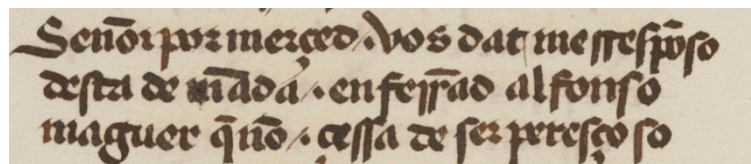 Señor por merçed / vos dat me rrespõso
desta demãda / enferrãd alfonso
maguer q̃ nõ / çessa de ser peresçoso